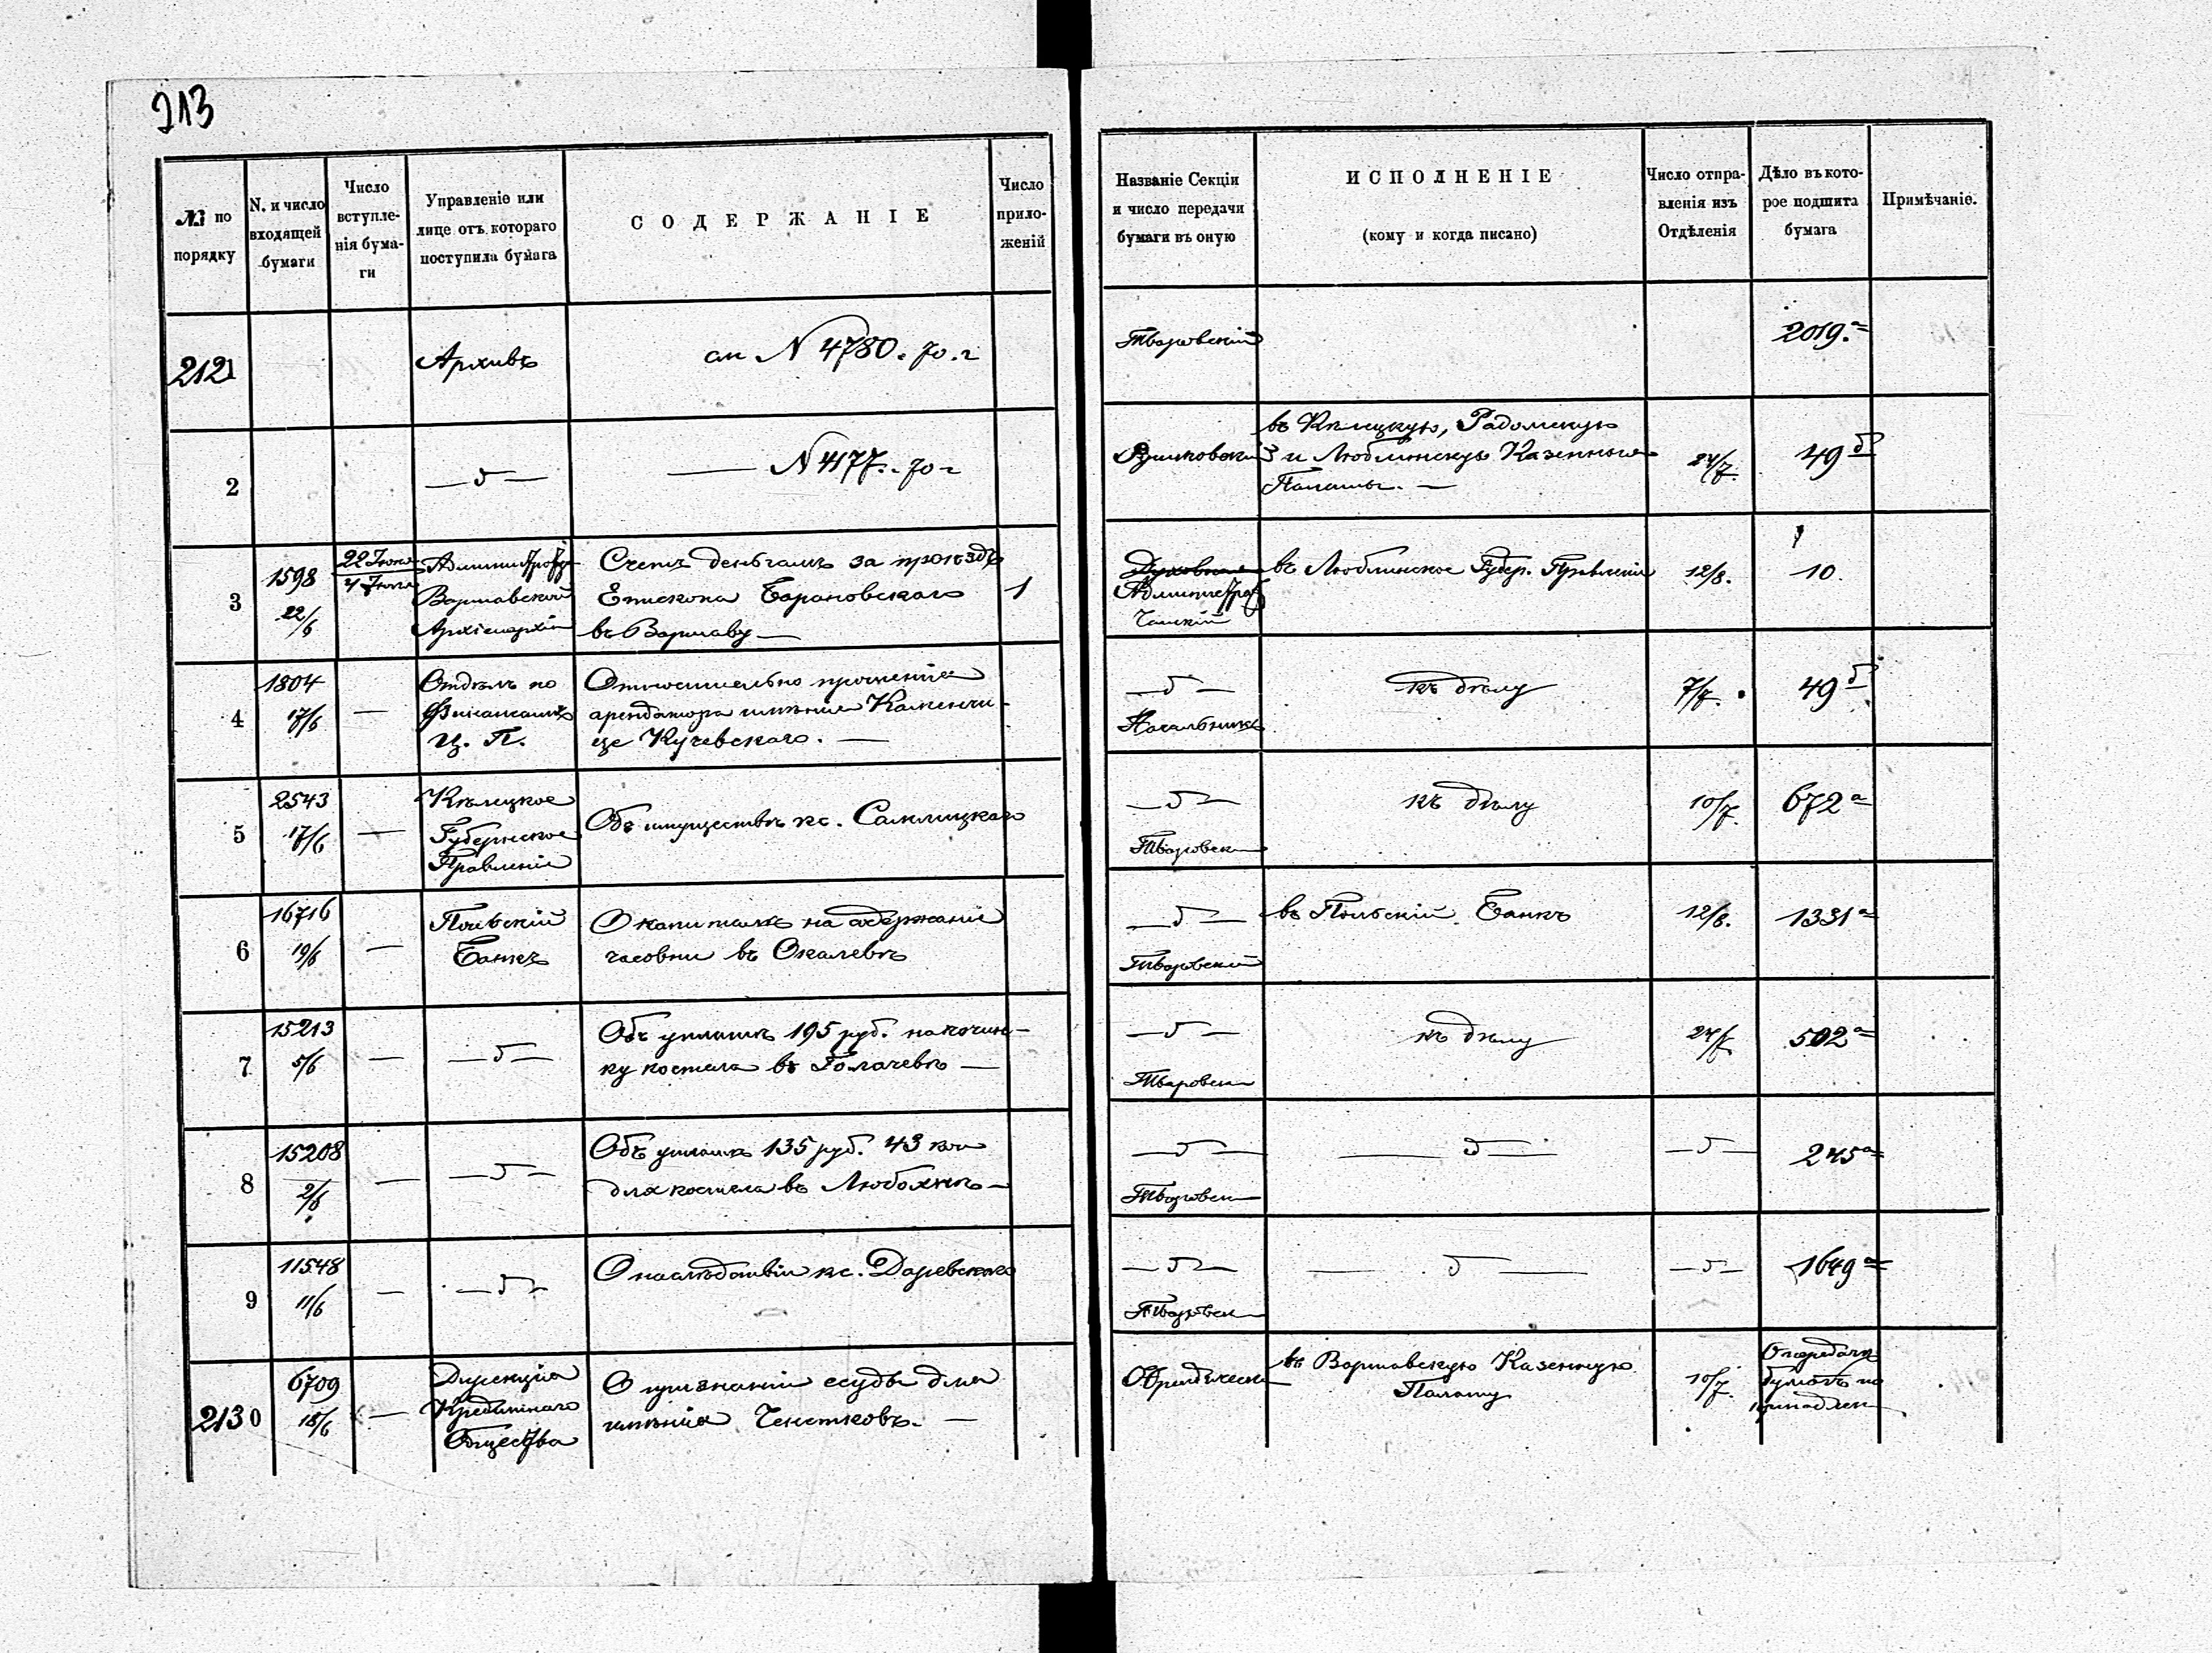 213
№ по порядку
N. и число входящей бумаги
Число вступленія бумаги
Управленіе или лице отъ котораго поступила бумага
СОДЕРЖАНІЕ
Число приложеній
Названіе Секціи и число передачи бумаги въ оную
ИСПОЛНЕНІЕ
(кому и когда писано)
Число отправленія изъ Отдѣленія
Дѣло въ которое подшита бумага
Примѣчаніе.
2121
Архивъ
см N 4780. 70. г
Тваровскій
2019.а
2
— д —
— N 4177. 70 г
въ Кѣлецкую, Радомскую
и Люблинскую Казенныя
Палаты. —
24/7.
49 б
3
1598
22/6
22 Іюня
4 Іюля
Варшавской
Архіепархіи
Счетъ деньгамъ за проѣздъ
Епископа Барановскаго
въ Варшаву —
1
въ Люблинское Губер. Правленіе
12/8.
10.
4
1804
17/6
—
Отдѣлъ по
Финансамъ
Ц. П.
Относительно прошенія
арендатора имѣнія Каменчи-
це Кучевскаго. —
— д —
Начальникъ
къ дѣлу
7/7.
49 б
5
2543
17/6
—
Кѣлецкое
Губернское
Правленіе
Объ имуществѣ кс.
— д —
Тваровск
къ дѣлу
10/7.
672 а
6
16716
19/6
—
Польскій
Банкъ
О капиталѣ на содержаніе
часовни въ Окалевѣ
— д —
Тваровскій
въ Польскій Банкъ
12/8.
1331 а
7
15213
5/6
—
— д —
Объ уплатѣ 195 руб. на почин-
ку костела въ Голачевѣ —
— д —
Тваровск
къ дѣлу
24/7.
502 а
8
15208
2/6
—
— д —
Объ уплатѣ 135 руб. 43 коп
для костела въ Любохнѣ —
— д —
Тваровск
— д —
— д —
245 а
9
11548
11/6
—
— д —
О наслѣдствіи кс. Даревскаго
— д —
Тваровск
— д —
— д —
1649 а
2130
6709
18/6
—
Дирекція
Кредитнаго
Общества
О признаніи ссуды для
имѣнія Ченстковъ. —
Юридическ
въ Варшавскую Казенную
Палату
10/7.
О передачѣ
бумагъ по
принадлеж